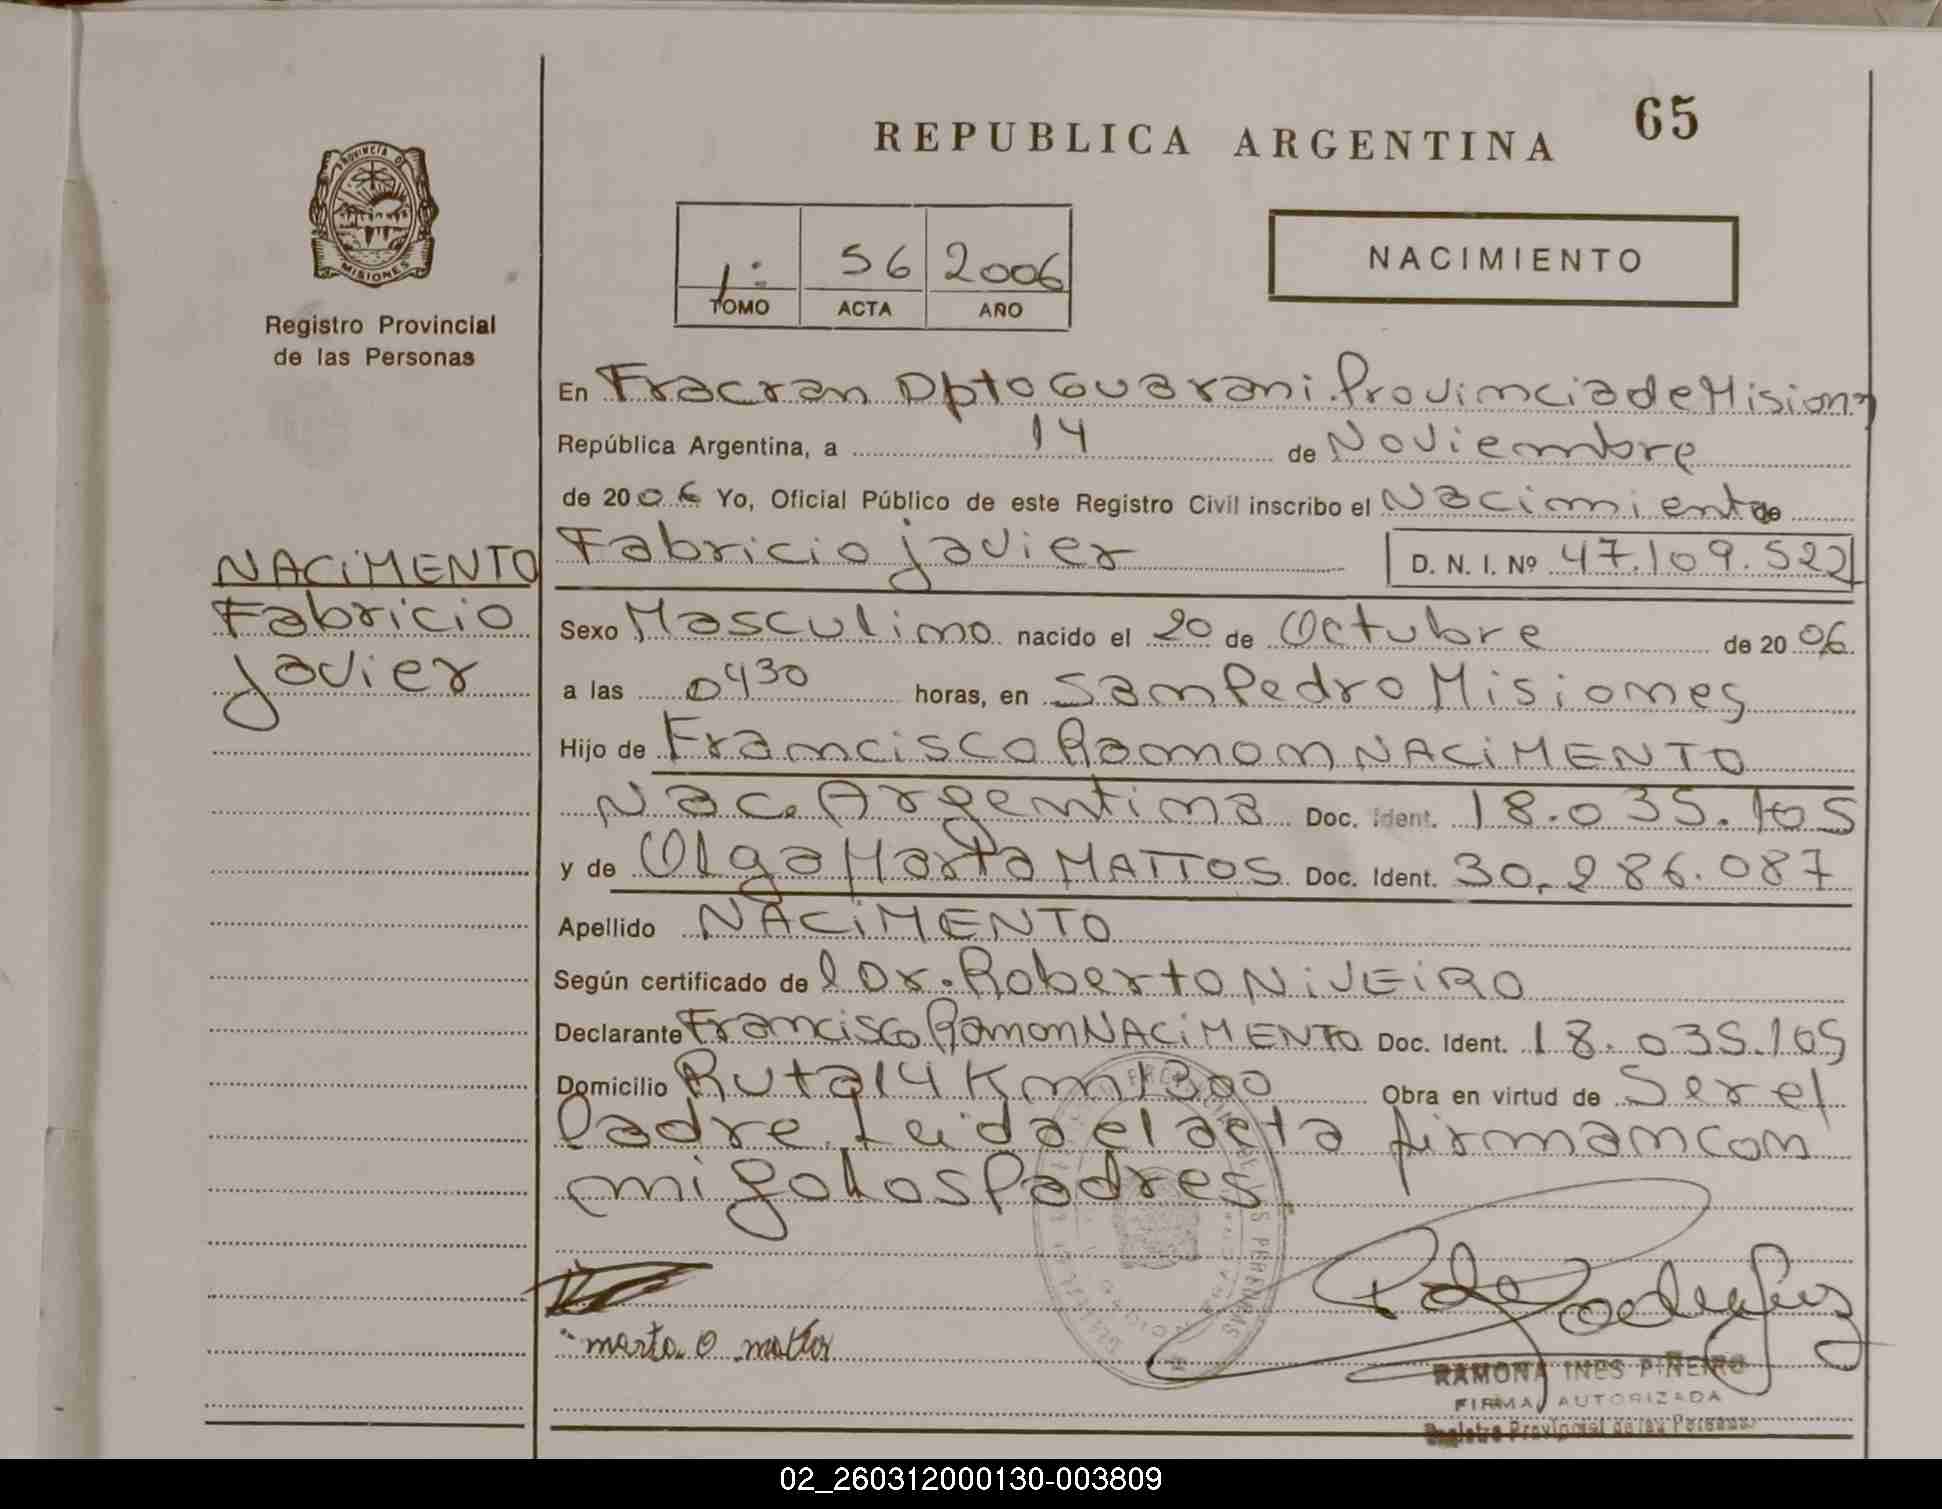 65
REPUBLICA ARGENTINA
PROVINCIA DE
MISIONES
Registro Provincial
de las Personas
1:
56
2006
TOMO
ACTA
AÑO
NACIMIENTO
En Fracran Dpto Guarani Provincia de Mision
República Argentina, a 14 de Noviembre
de 2006 Yo, Oficial Público de este Registro Civil inscribo el Nacimiento de
Fabricio javier
D. N. I. Nº 47.109.522
NACiMENTO
Fabricio
javier
Sexo Masculino nacido el 20 de Octubre de 2006
a las 0430 horas, en San Pedro Misiones
Hijo de Francisco Ramon NACiMENTO
Nac. Argentina Doc. Ident. 18.035.105
y de Olga Marta MATTOS Doc. Ident. 30.286.087
Apellido NACiMENTO
Según certificado de l Dr. Roberto NiVEiRO
Declarante Francisco Ramon NACiMENTO Doc. Ident. 18.035.105
Domicilio Ruta 14 Km 1300 Obra en virtud de Ser el
Padre. Leida el acta firman con
migo los Padres
marta O mattos
RAMONA INES PIÑEIRO
FIRMA AUTORIZADA
Registro Provincial de las Personas
02_260312000130-003809